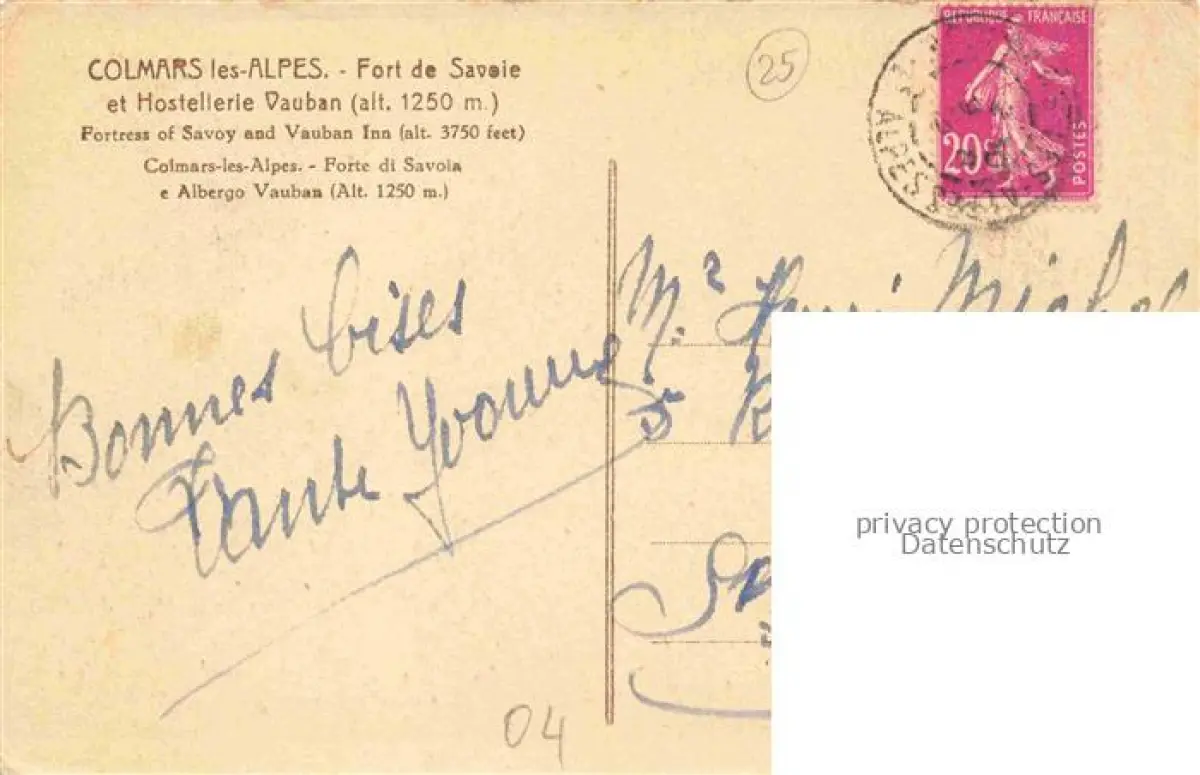 COLMARS les-ALPES. - Fort de Savoie
et Hostellerie Vauban (alt. 1250 m.)
Fortress of Savoy and Vauban Inn (alt. 3750 feet)
Colmars-les-Alpes. - Forte di Savoia
e Albergo Vauban (Alt. 1250 m.)
25
RÉPUBLIQUE FRANÇAISE
20c
POSTES
ALPES
Bonnes bises
Tante Yvonne
Mr Henri Michel
5 R
04
privacy protection
Datenschutz